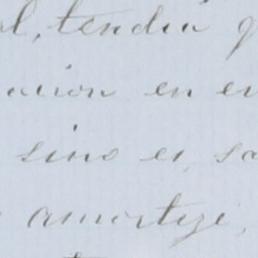 l, tendra
acion en
sino es, sa
amortize,